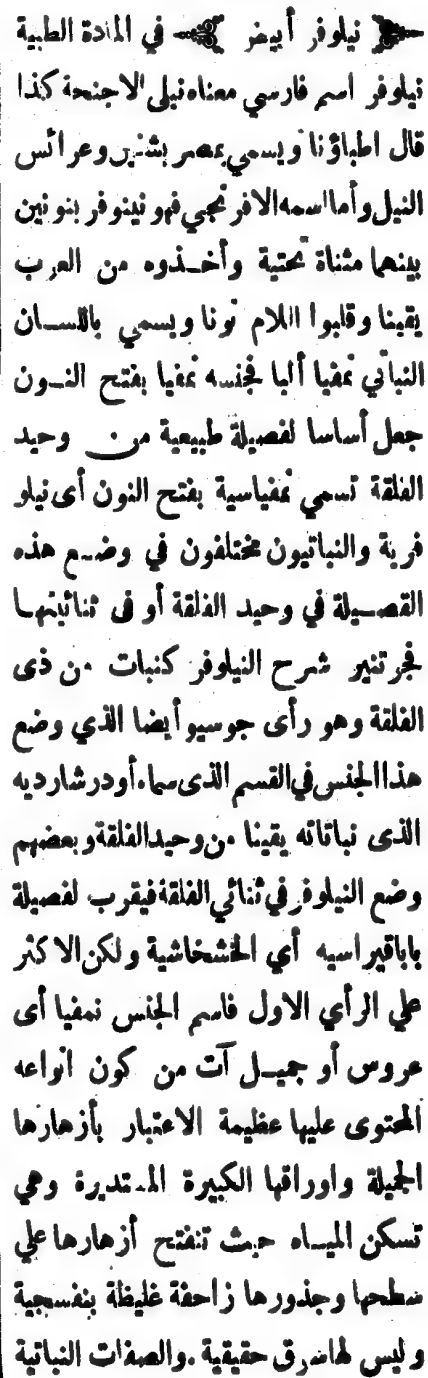 نيلوفر أبيض في المادة الطبية
نيلوفر اسم فارسي معناه نيلى الاجنحة كذا
قال اطباؤنا ويسمي بمصر بشنين وعرائس
النيل وأما اسمه الافرنجي فهو نينوفر بنونين
بينهما مثناة تحتية وأخذوه من العرب
يقينا وقلبوا اللام نونا ويسمي باللسان
النباتي نمفيا ألبا فجنسه نمفيا بفتح النون
جعل أساسا لفصيلة طبيعية من وحيد
الفلقة تسمي نمفياسية بفتح النون أى نيلو
فرية والنباتيون مختلفون في وضع هذه
الفصيلة في وحيد الفلقة أو فى ثنائيتها
فجرتنير شرح النيلوفر كنبات من ذى
الفلقة وهو رأى جوسيو أيضا الذي وضع
هذا الجنس في القسم الذى سماه أودرشارديه
الذى نباتاته يقينا من وحيد الفلقة وبعضهم
وضع النيلوفر في ثنائي الفلقة فيقرب لفصيلة
باباقيراسيه أي الخشخاشية ولكن الاكثر
علي الرأي الاول فاسم الجنس نمفيا أى
عروس أو جميل آت من كون انواعه
المحتوى عليها عظيمة الاعتبار بأزهارها
الجميلة واوراقها الكبيرة المستديرة وهي
تسكن المياه حيث تنفتح أزهارها علي
سطحها وجذورها زاحفة غليظة بنفسجية
وليس لها سوق حقيقية . والصفات النباتية